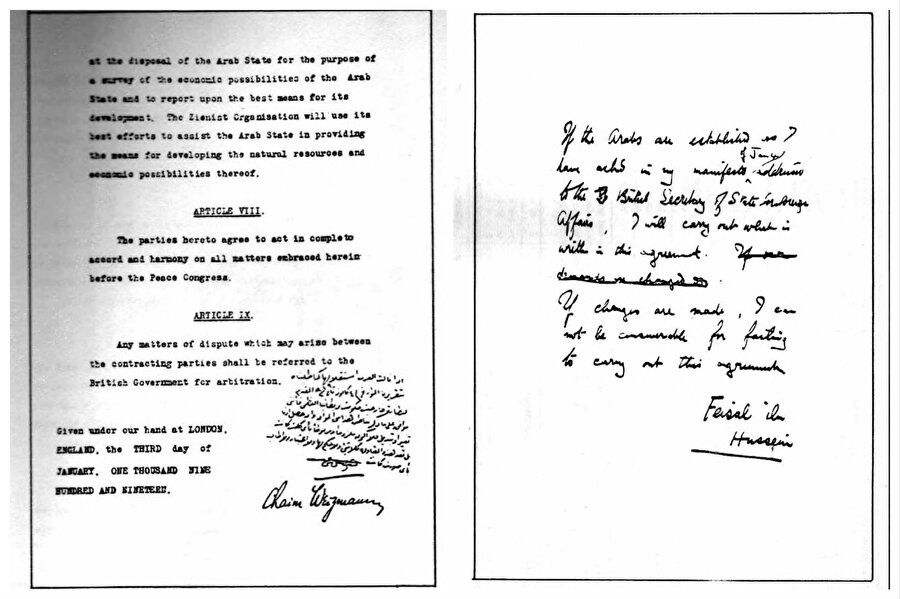 at the disposal of the Arab State for the purpose of
a survey of the economic possibilities of the Arab
State and to report upon the best means for its
development. The Zionist Organisation will use its
best efforts to assist the Arab State in providing
the means for developing the natural resources and
economic possibilities thereof.
ARTICLE VIII.
The parties hereto agree to act in complete
accord and harmony on all matters embraced herein
before the Peace Congress.
ARTICLE IX.
Any matters of dispute which may arise between
the contracting parties shall be referred to the
British Government for arbitration.
Given under our hand at LONDON,
ENGLAND, the THIRD day of
JANUARY, ONE THOUSAND NINE
HUNDRED AND NINETEEN.
اذا نالت العرب استقلالها
المؤرخ في
حكومة بريطانيا العظمى
موافق على ما ذكر
تغيير او تبديل
هذه المقاولة
كانت
Chaim Weizmann
If the Arabs are established as I
have asked in my manifesto of Jan addressed
to the British Secretary of State for Foreign
Affairs, I will carry out what is
written in this agreement.
If changes are made, I can
not be answerable for failing
to carry out this agreement
Feisal ibn
Hussein